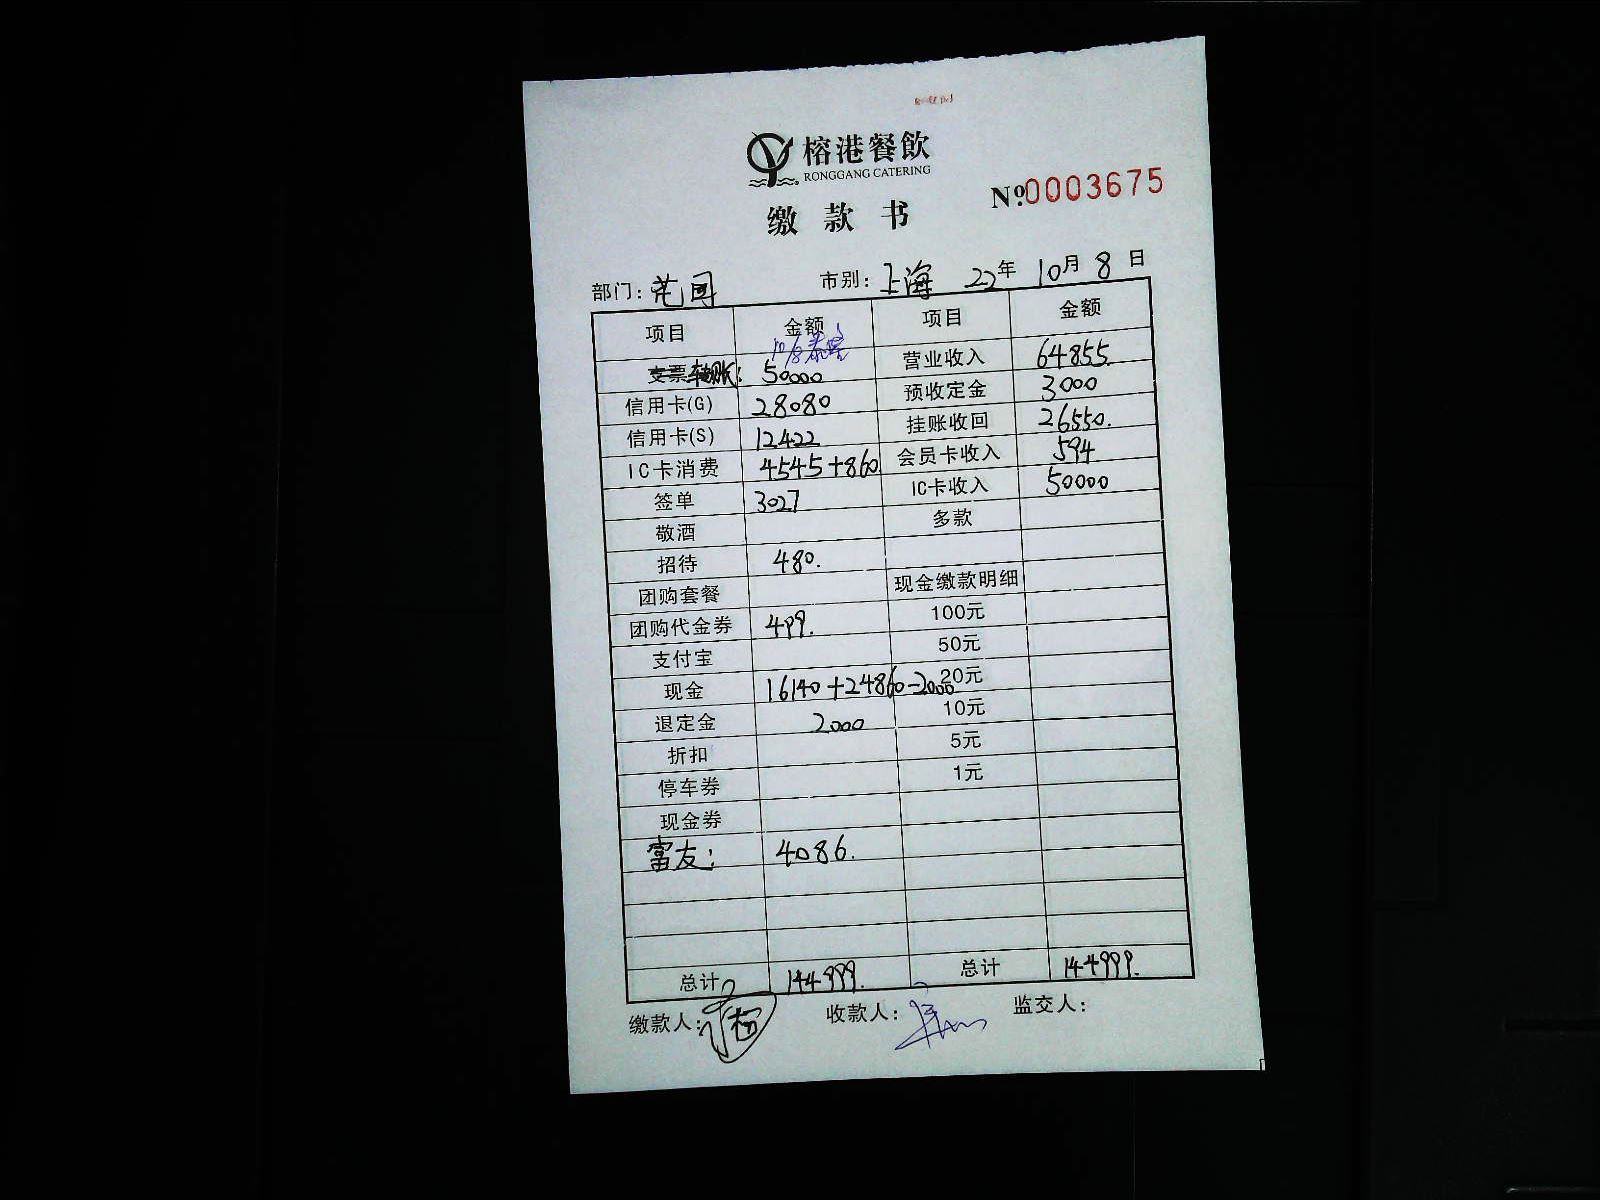 榕港餐飲
RONGGANG CATERING
缴款书
Nº.0003675
部门: 市别: 上海 22年 10月 8日
项目 金额 项目 金额
10/8
支票 转账: 50000 营业收入 64855.
信用卡(G) 28080 预收定金 3000
信用卡(S) 12422 挂账收回 26550.
IC卡消费 4545+860 会员卡收入 594
签单 3027 IC卡收入 50000
敬酒 多款
招待 480.
团购套餐 现金缴款明细
团购代金券 499. 100元
支付宝 50元
现金 16140+24860-2000 20元
退定金 2000 10元
折扣 5元
停车券 1元
现金券
富友: 4086.
总计 144999. 总计 144999.
缴款人: 收款人: 监交人: